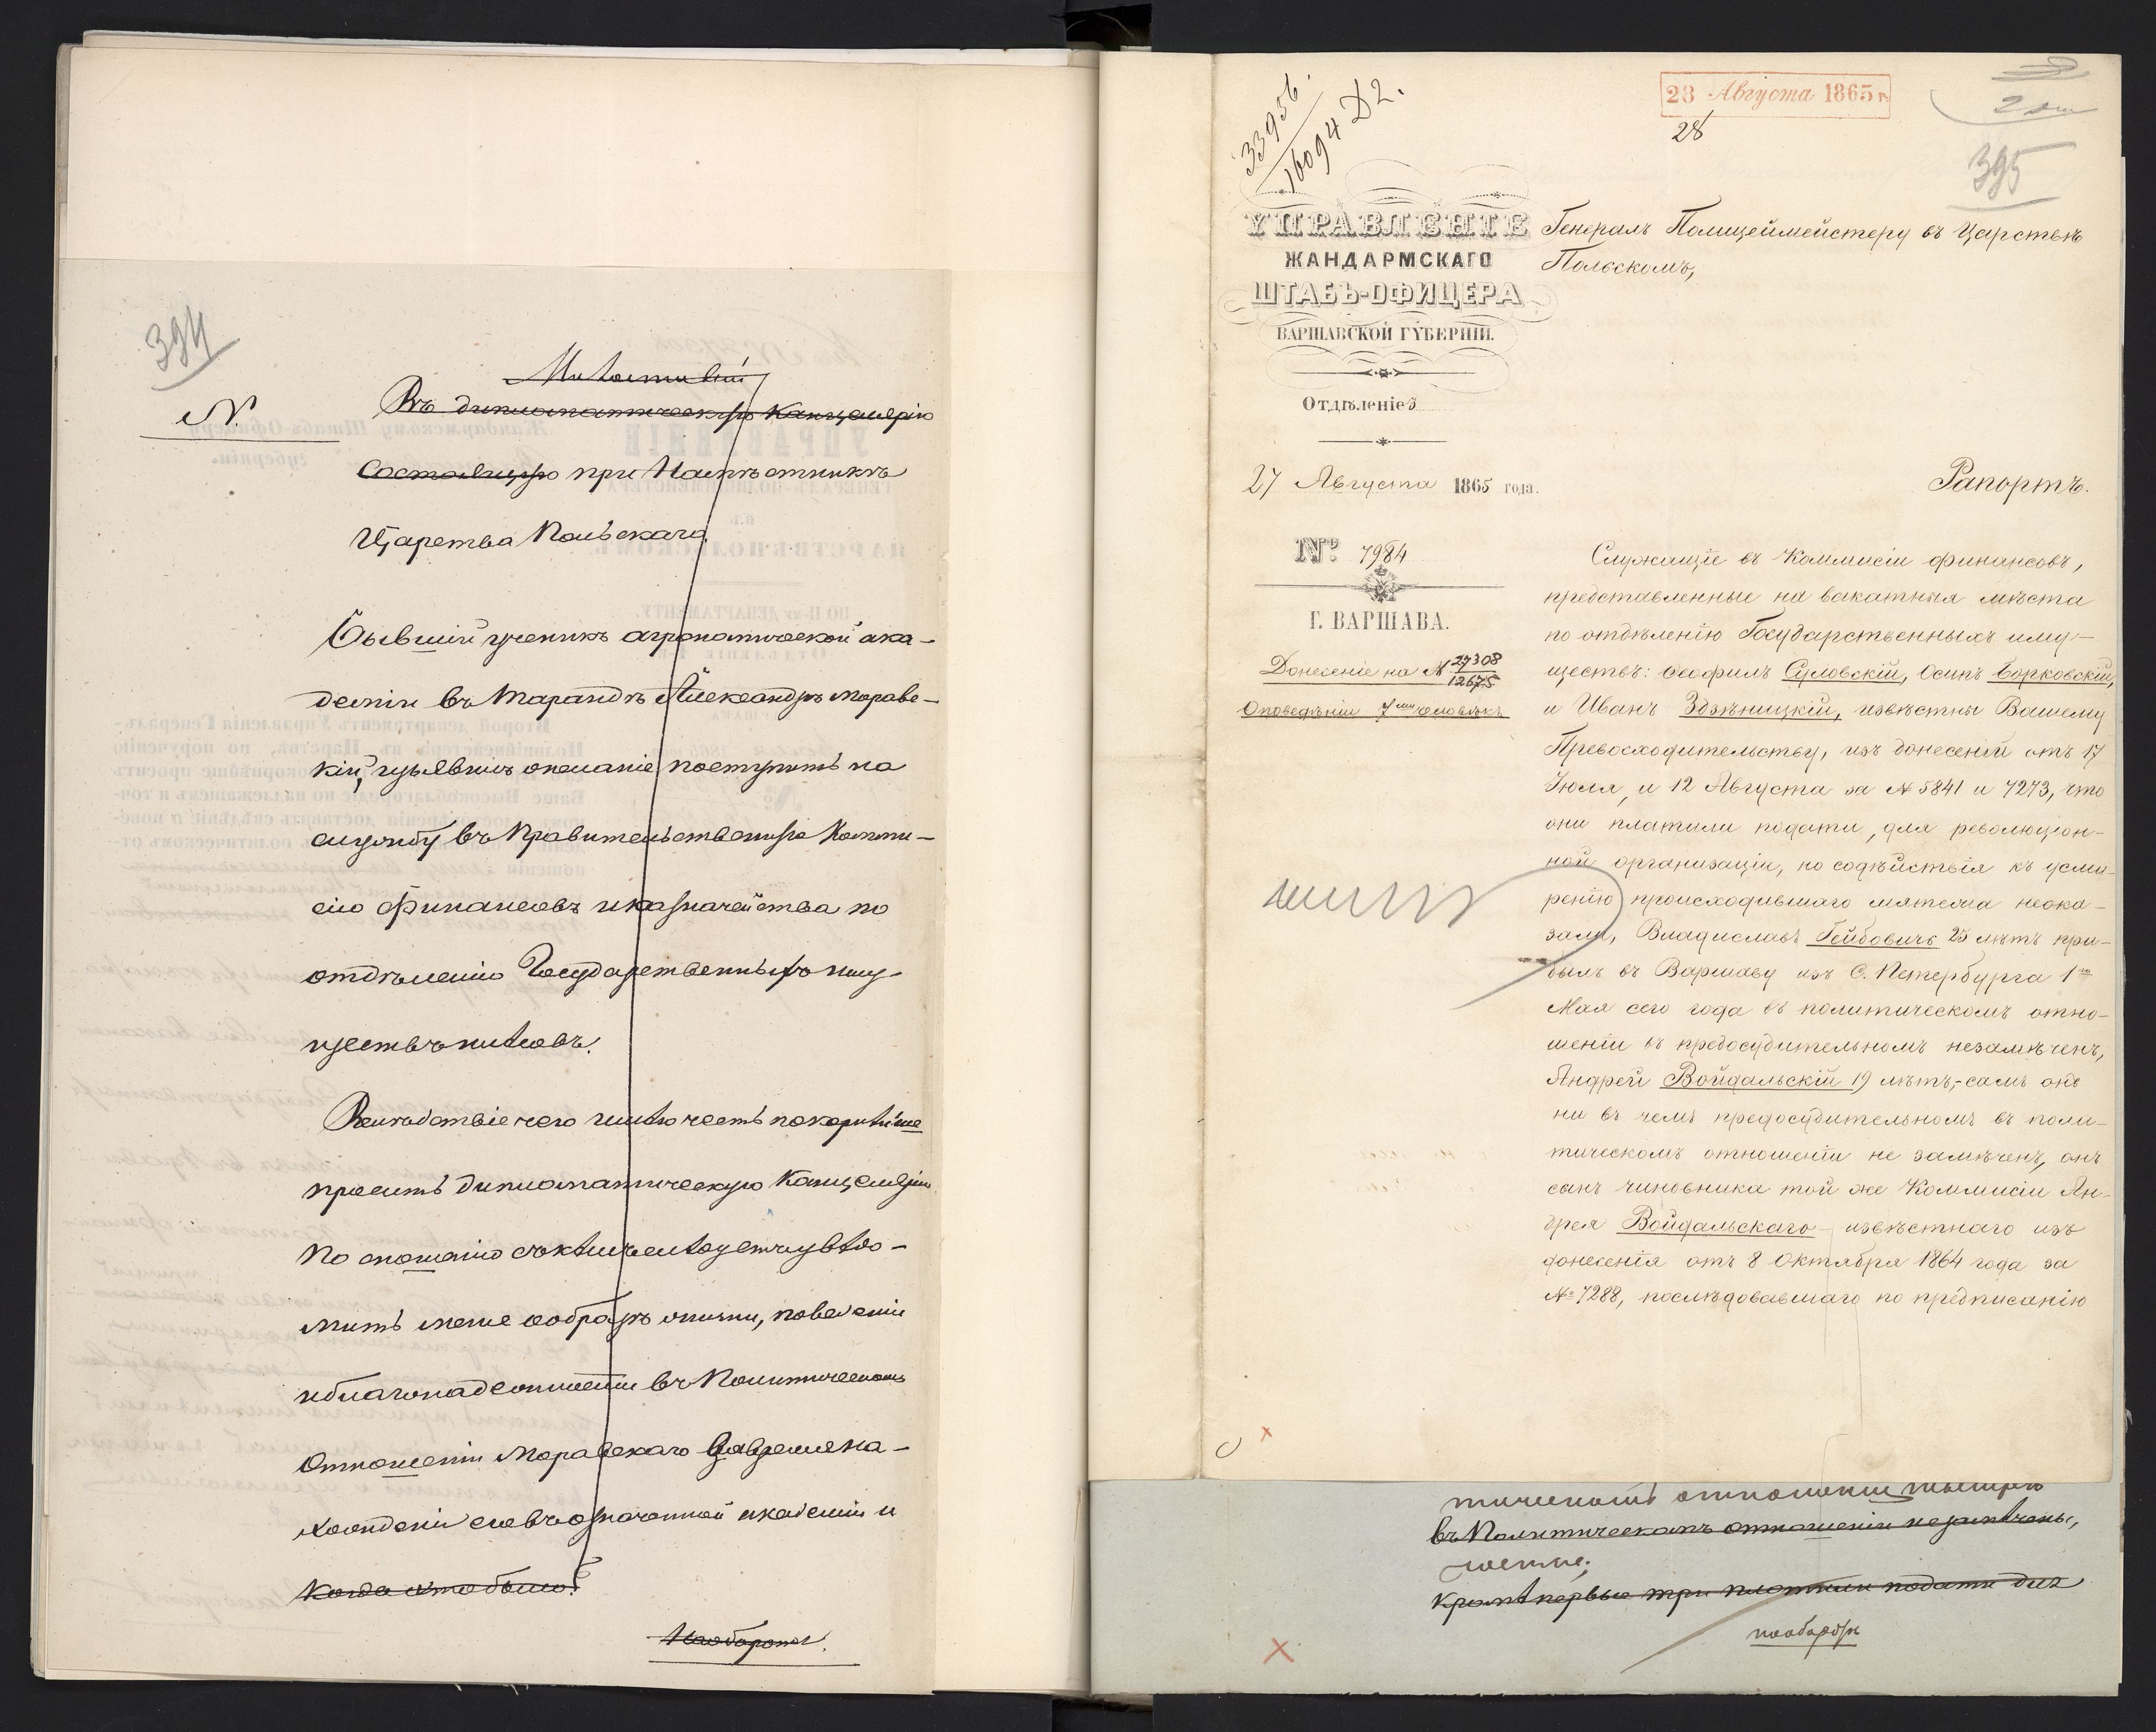 394
N.
Милостивый
Въ дипломатическую Канцелярію
Состоящую при Намѣстникѣ
Царства Польскаго.
Бывшій ученикъ агрономической ака-
деміи въ Тарандѣ Александръ Морав-
скій, изъявилъ желаніе поступить на
службу въ Правительственную Комми-
сію Финансовъ и казначейства по
отдѣленію Государственныхъ иму-
ществъ и лѣсовъ.
Вслѣдствіе чего имѣю честь покорнѣйше
просить дипломатическую Канцелярію
по сношенію съ кѣмъ слѣдуетъ увѣдо-
мить меня о образѣ жизни, поведеніи
и благонадежности въ Политическомъ
Отношеніи Моравскаго во время на-
хожденія его въ означенной академіи и
когда это было?
Наоборотѣ.
33956.
16094 Д2.
23 Августа 1865 г.
28
395
УПРАВЛЕНІЕ
ЖАНДАРМСКАГО
ШТАБЪ-ОФИЦЕРА
ВАРШАВСКОЙ ГУБЕРНІИ.
Отдѣленіе
27 Августа 1865 года.
№ 7984
Г. ВАРШАВА.
Донесеніе на № 27308
12675
О поведеніи 7ми человѣкъ
Генералъ Полицеймейстеру въ Царствѣ
Польскомъ,
Рапортъ.
Служащіе въ Коммисіи финансовъ,
представленные на вакатныя мѣста
по отдѣленію Государственныхъ иму-
ществъ: Ѳеофилъ Суловскій, Осипъ Борковскій,
и Иванъ Здзѣницкій, извѣстны Вашему
Превосходительству, изъ донесеній отъ 17
Іюля, и 12 Августа за № 5841 и 7273, что
они платили подати, для революціон-
ной организаціи, но содѣйствія къ усми-
ренію происходившаго мятежа неока-
зали, Владиславъ Гейбовичъ 25 лѣтъ при-
былъ въ Варшаву изъ С. Петербурга 1го
Мая сего года въ политическомъ отно-
шеніи въ предосудительномъ незамѣченъ,
Андрей Войдальскій 19 лѣтъ,- самъ онъ
ни въ чемъ предосудительномъ въ поли-
тическомъ отношеніи не замѣченъ, онъ
сынъ чиновника той же Коммисіи Ан-
дрея Войдальскаго извѣстнаго изъ
донесенія отъ 8 Октября 1864 года за
№ 7288, послѣдовавшаго по предписанію
тическомъ отношеніи
въ Политическомъ отношеніи не замѣчены,
кромѣ первые три платили подати для
наоборотѣ